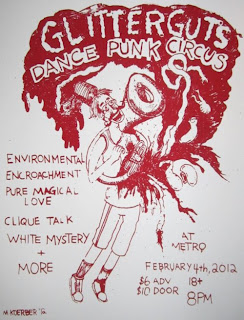 GLITTERGUTS
DANCE PUNK CIRCUS
ENVIRONMENTAL
ENCROACHMENT
PURE MAGICAL
LOVE
CLIQUE TALK
WHITE MYSTERY
+
MORE
AT
METRO
FEBRUARY 4TH, 2012
$6 ADV 18+
$10 DOOR 8PM
M. KOERBER '12